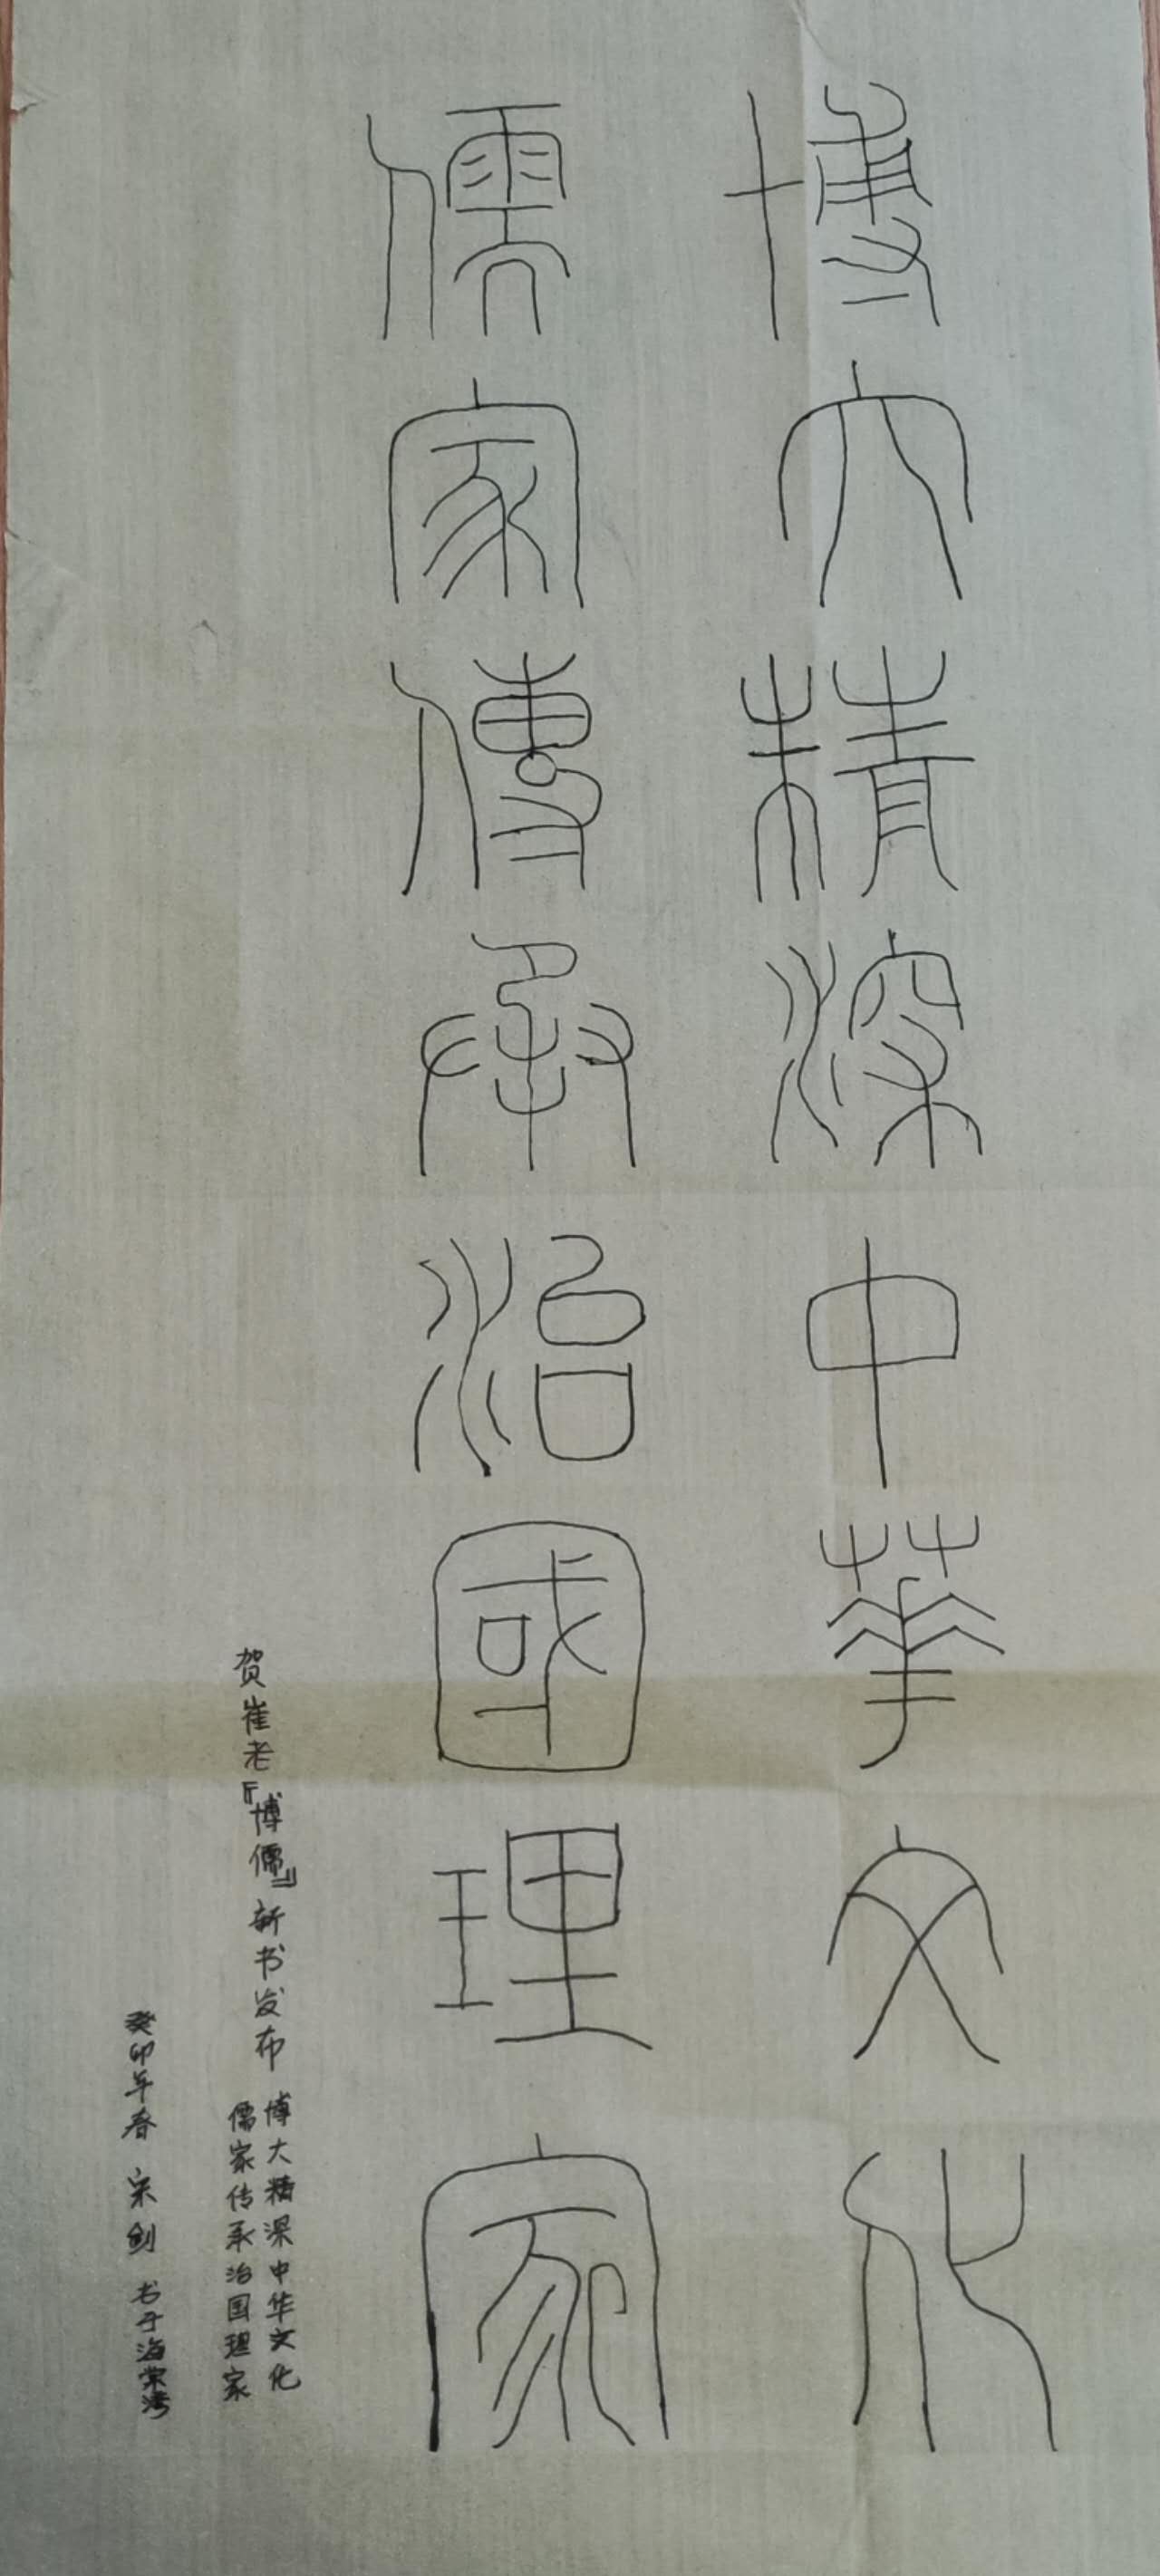 博大精深中華文化
儒家傳承治國理家
贺崔老『博儒』新书发布
博大精深中华文化
儒家传承治国理家
癸卯年春 宋剑 书于海棠湾